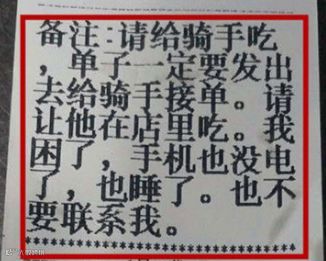 备注:请给骑手吃
，单子一定要发出
去给骑手接单。请
让他在店里吃。我
困了，手机也没电
了，也睡了。也不
要联系我。